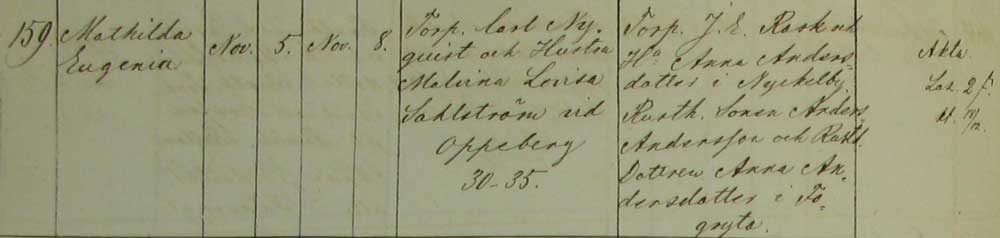 159.
Mathilda
Eugenia
Nov.
5.
Nov.
8.
Torp. Carl Ny,
quist och Hustru
Malvina Lovisa
Sahlström vid
Oppeberg
30-35.
Torp. J. E. Rask och
Hu Anna Anders,
dotter i Nyckelby.
Rusth. Sonen Anders
Andersson och Rusth.
Dottren Anna An,
dersdotter i To,
gryta.
Äkta.